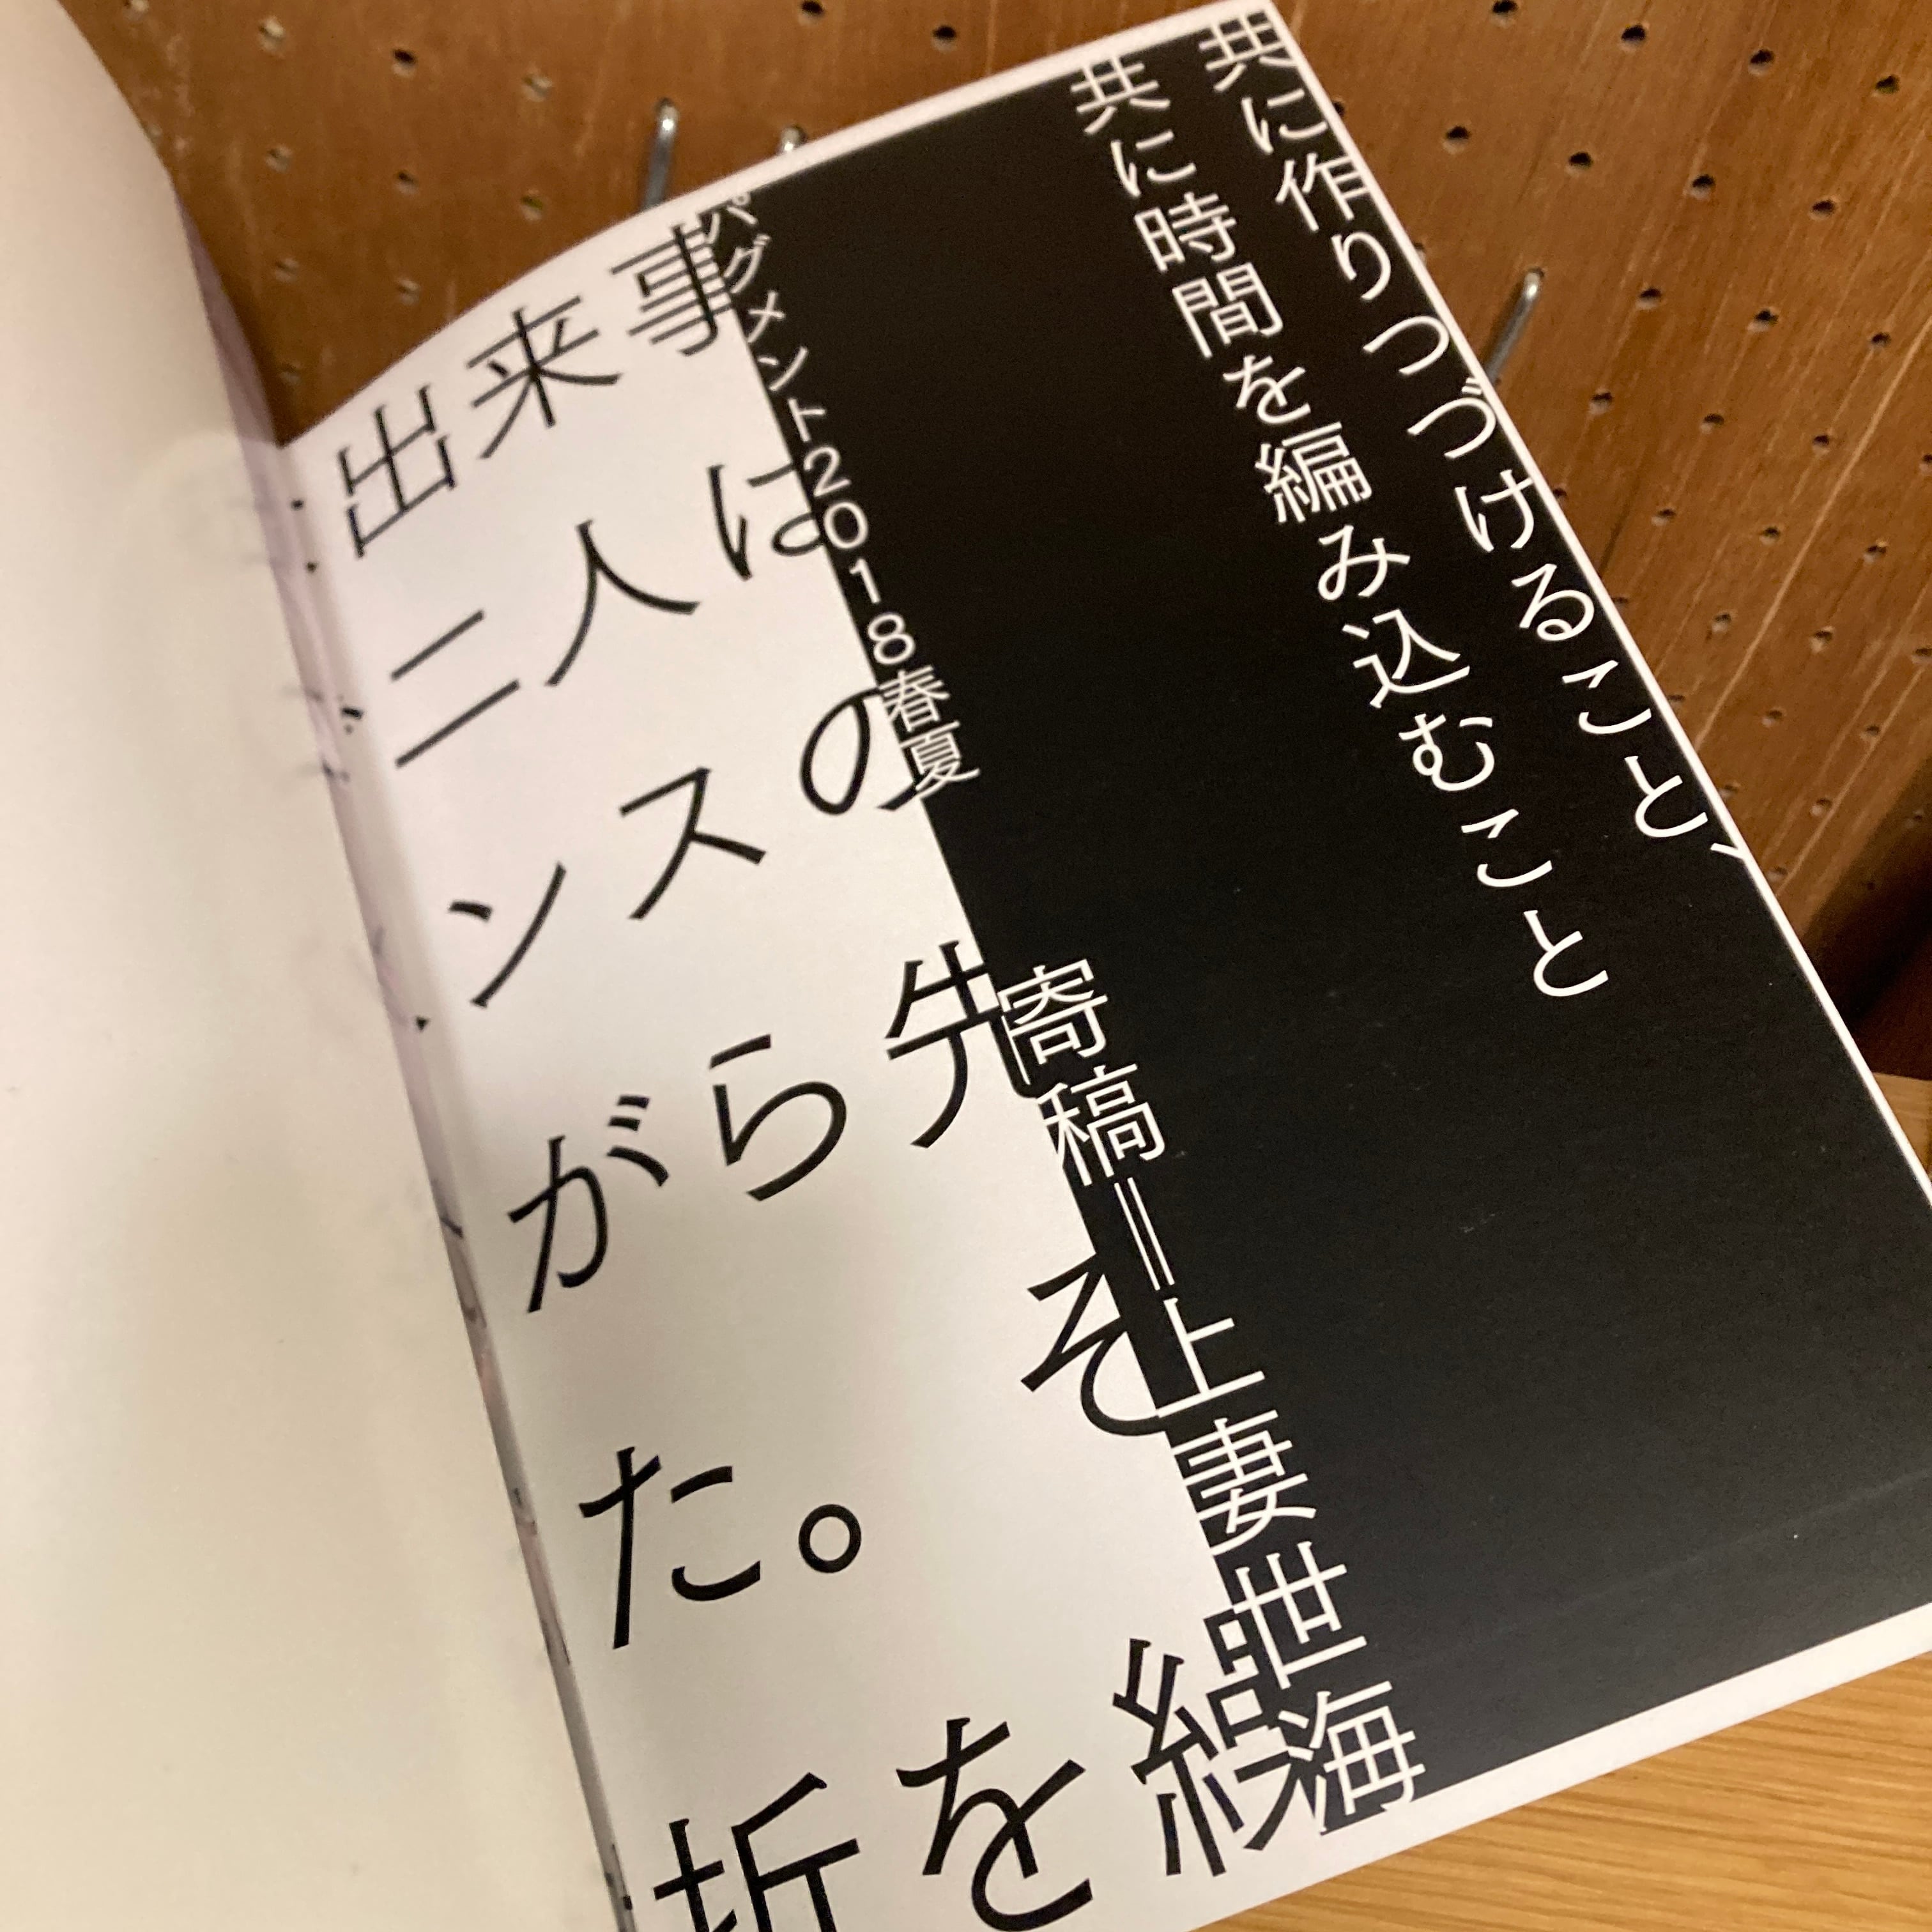 共に作りつづけること、
共に時間を編み込むこと
パグメント2018春夏
寄稿＝上妻世海
出来事
二人は
ンスの
がら先
た。そ
折を繰